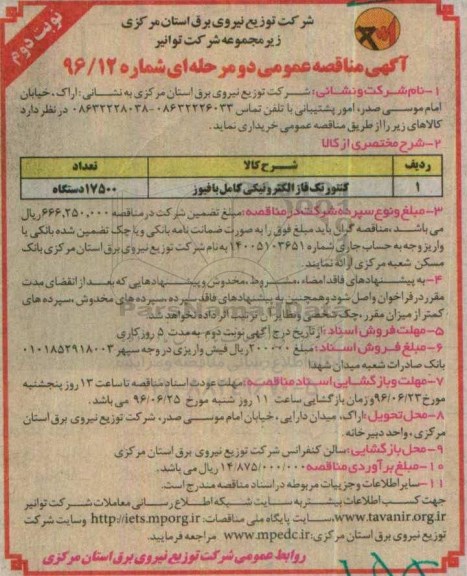 نوبت دوم
شرکت توزیع نیروی برق استان مرکزی
زیر مجموعه شرکت توانیر
آگهی مناقصه عمومی دو مرحله ای شماره ۹۶/۱۲
۱-نام شرکت و نشانی: شرکت توزیع نیروی برق استان مرکزی به نشانی: اراک، خیابان
امام موسی صدر، امور پشتیبانی با تلفن تماس ۰۸۶۳۲۲۲۶۰۳۳-۰۸۶۳۲۲۲۸۰۳۸ در نظر دارد
کالاهای زیر را از طریق مناقصه عمومی خریداری نماید.
۲-شرح مختصری از کالا
ردیف شرح کالا تعداد
۱ کنتور تک فاز الکترونیکی کامل با فیوز ۱۷۵۰۰ دستگاه
۳-مبلغ و نوع سپرده شرکت در مناقصه: مبلغ تضمین شرکت در مناقصه ۶۶۶,۲۵۰,۰۰۰ ریال
می باشد، مناقصه گران باید مبلغ فوق را به صورت ضمانت نامه بانکی و یا چک تضمین شده بانکی یا
واریز وجه به حساب جاری شماره ۱۴۰۰۵۱۰۳۶۵۱ به نام شرکت توزیع نیروی برق استان مرکزی بانک
مسکن شعبه مرکزی ارائه نمایند.
۴-به پیشنهادهای فاقد امضاء، مشروط، مخدوش و پیشنهادهایی که بعد از انقضای مدت
مقرر در فراخوان واصل شود و همچنین به پیشنهادهای فاقد سپرده، سپرده های مخدوش، سپرده های
کمتر از میزان مقرر، چک شخصی و نظایر آن ترتیب اثر داده نخواهد شد.
۵-مهلت فروش اسناد: از تاریخ درج آگهی نوبت دوم به مدت ۵ روز کاری
۶-مبلغ فروش اسناد: مبلغ ۲۰۰۰۰۰ ریال فیش واریزی در وجه سپهر ۰۱۰۱۸۵۲۹۱۸۰۰۳
بانک صادرات شعبه میدان شهدا
۷-مهلت و بازگشایی اسناد مناقصه: مهلت عودت اسناد مناقصه تا ساعت ۱۳ روز پنجشنبه
مورخ ۹۶/۰۶/۲۳ و زمان بازگشایی ساعت ۱۱ روز شنبه مورخ ۹۶/۰۶/۲۵ می باشد.
۸-محل تحویل: اراک، میدان دارایی، خیابان امام موسی صدر، شرکت توزیع نیروی برق استان
مرکزی، واحد دبیرخانه.
۹-محل بازگشایی: سالن کنفرانس شرکت توزیع نیروی برق استان مرکزی
۱۰-مبلغ برآوردی مناقصه ۱۴/۸۷۵/۰۰۰/۰۰۰ ریال می باشد.
۱۱-سایر اطلاعات و جزییات مربوطه در اسناد مناقصه مندرج است.
جهت کسب اطلاعات بیشتر به سایت شبکه اطلاع رسانی معاملات شرکت توانیر
www.tavanir.org.ir، سایت پایگاه ملی مناقصات: http://iets.mporg.ir و سایت شرکت
توزیع نیروی برق استان مرکزی: www.mpedc.ir مراجعه فرمایید.
روابط عمومی شرکت توزیع نیروی برق استان مرکزی